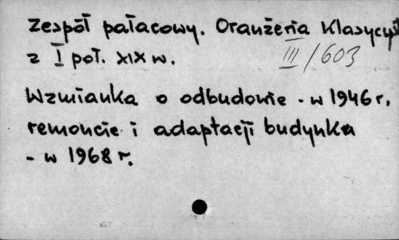 Zespół pałacowy. Oranżeria klasycyst
z I poł. XIX w. III/603
Wzmianka o odbudowie - w 1946 r,
remoncie i adaptacji budynku
- w 1968 r.